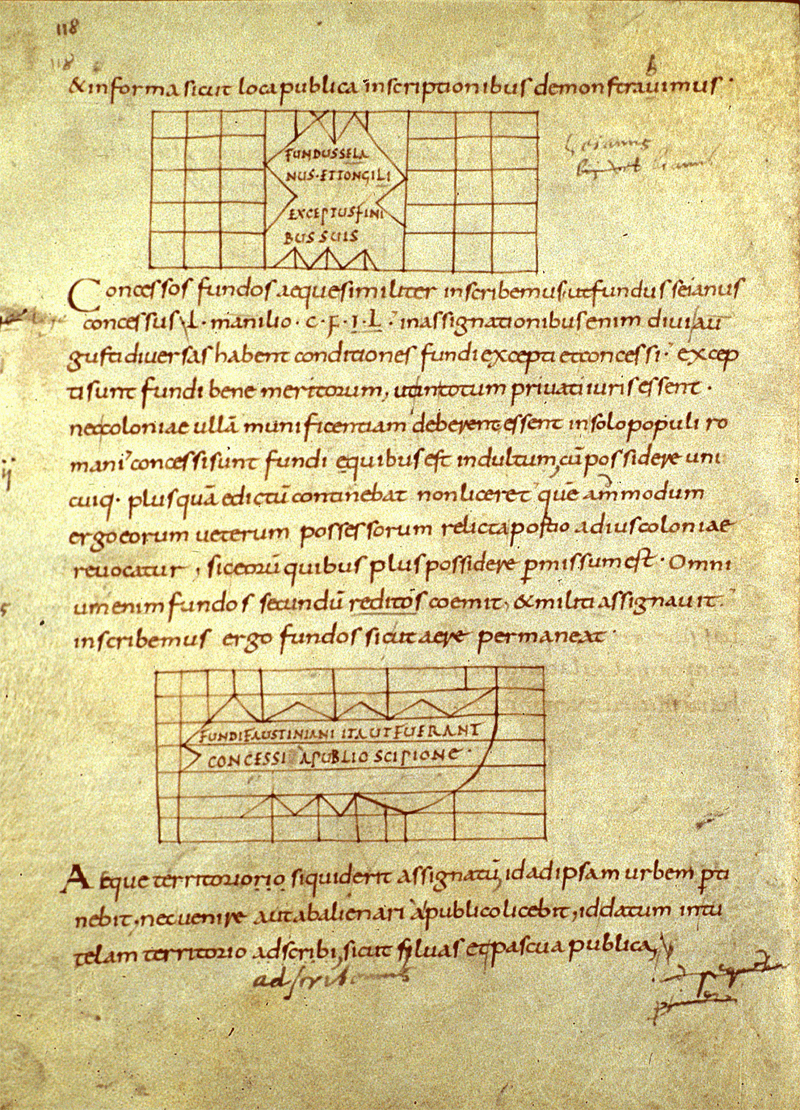 118
118
& in forma sicut loca publica inscriptionibus demonstrauimus·
b
FUNDUS SELA
NUS·ET TONGILI
EXCEPTUS FINI
BUS SUIS
Concessos fundos aeque similiter inscribemus, ut fundus seianus
concessus L· manilio · c · f · I · L · in assignationibus enim diui au
gusti diuersas habent condiciones fundi excepti et concessi · excep
ti sunt fundi bene meritorum, ut in totum priuati iuris essent ·
nec coloniae ullā munificentiam deberent, essent in solo populi ro
mani concessi sunt fundi equibus est indultum, cū possidere uni
cuiq· plus quā edictū continebat non liceret quē ammodum
ergo eorum ueterum possessorum relicta portio ad ius coloniae
reuocatur, sic eorū quibus plus possidere pmissum est · Omni
um enim fundos secundū reditos coemit, & militi assignauit.
inscribemus ergo fundos sicut aere permaneat·
FUNDI FAUSTINIANI ITA UT FUERANT
CONCESSI A PUBLIO SCIPIONE·
Aeque territorio siquid erit assignatū, id ad ipsam urbem pti
nebit· nec uenire aut abalienari a publico licebit, id datum in tu
telam territorio adscribi, sicut siluas et pascua publica,
adscribemus